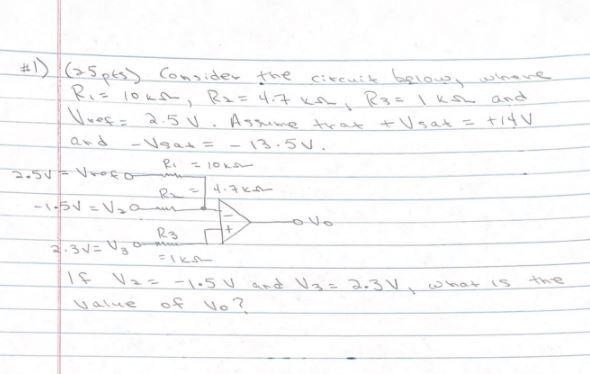 #1) (25pts) Consider the circuit below, where
R₁ = 10 kΩ, R₂ = 4.7 kΩ, R₃ = 1 kΩ and
Vref = 2.5 V. Assume that +Vsat = +14V
and -Vsat = -13.5V.
R₁ = 10kΩ
2.5V = Vref
R₂ = 4.7kΩ
-1.5V = V₂
-
Vo
+
R₃
2.3V = V₃
= 1kΩ
If V₂ = -1.5 V and V₃ = 2.3V, what is the
value of Vo?